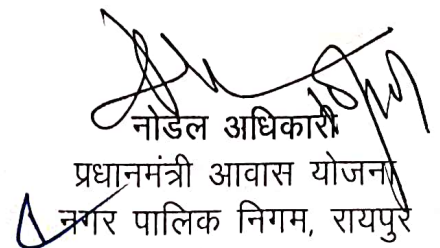 नोडल अधिकारी
प्रधानमंत्री आवास योजना
नगर पालिक निगम, रायपुर